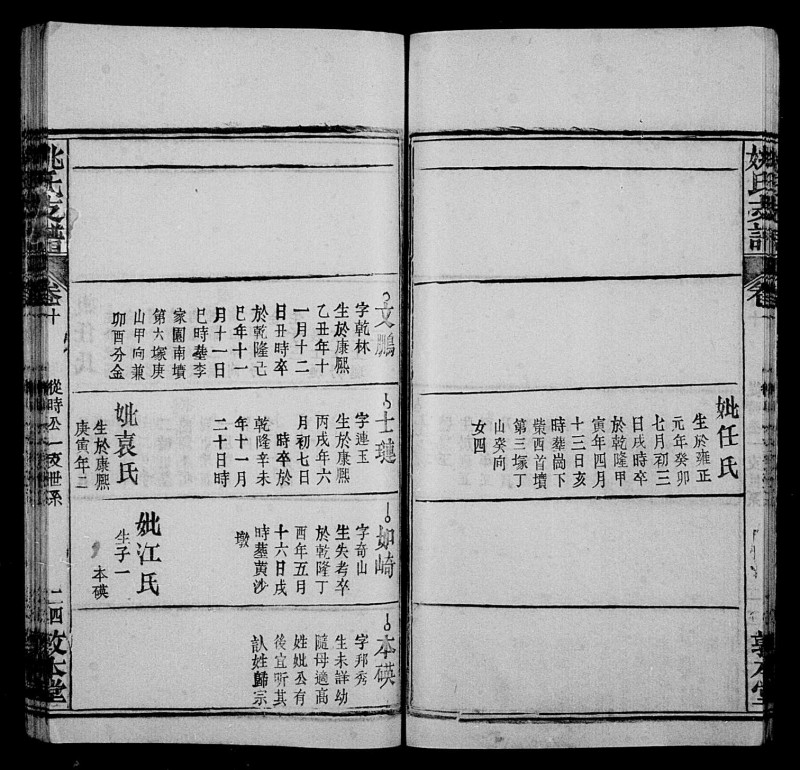 姚氏支譜
姚氏支譜
卷十
從時公一支世系
二四
敦本堂
妣任氏
生於雍正
元年癸卯
七月初三
日戌時卒
於乾隆甲
寅年四月
十三日亥
時塟嵩下
柴酉首墳
第三塚丁
山癸向
女四
文鵬
字乾林
生於康熈
乙丑年十
一月十二
日丑時卒
於乾隆己
巳年十一
月十一日
巳時塟李
家園南墳
第六塚庚
山甲向兼
卯酉分金
士璉
字連玉
生於康熈
丙戌年六
月初七日
時卒於
乾隆辛未
年十一月
二十日時
妣袁氏
生於康熈
庚寅年二
如崎
字奇山
生失考卒
於乾隆丁
酉年五月
十六日戌
時塟黄沙
墩
妣江氏
生子一
本碤
本碤
字邦秀
生未詳幼
隨母適高
姓妣公有
後宜听其
認姓歸宗